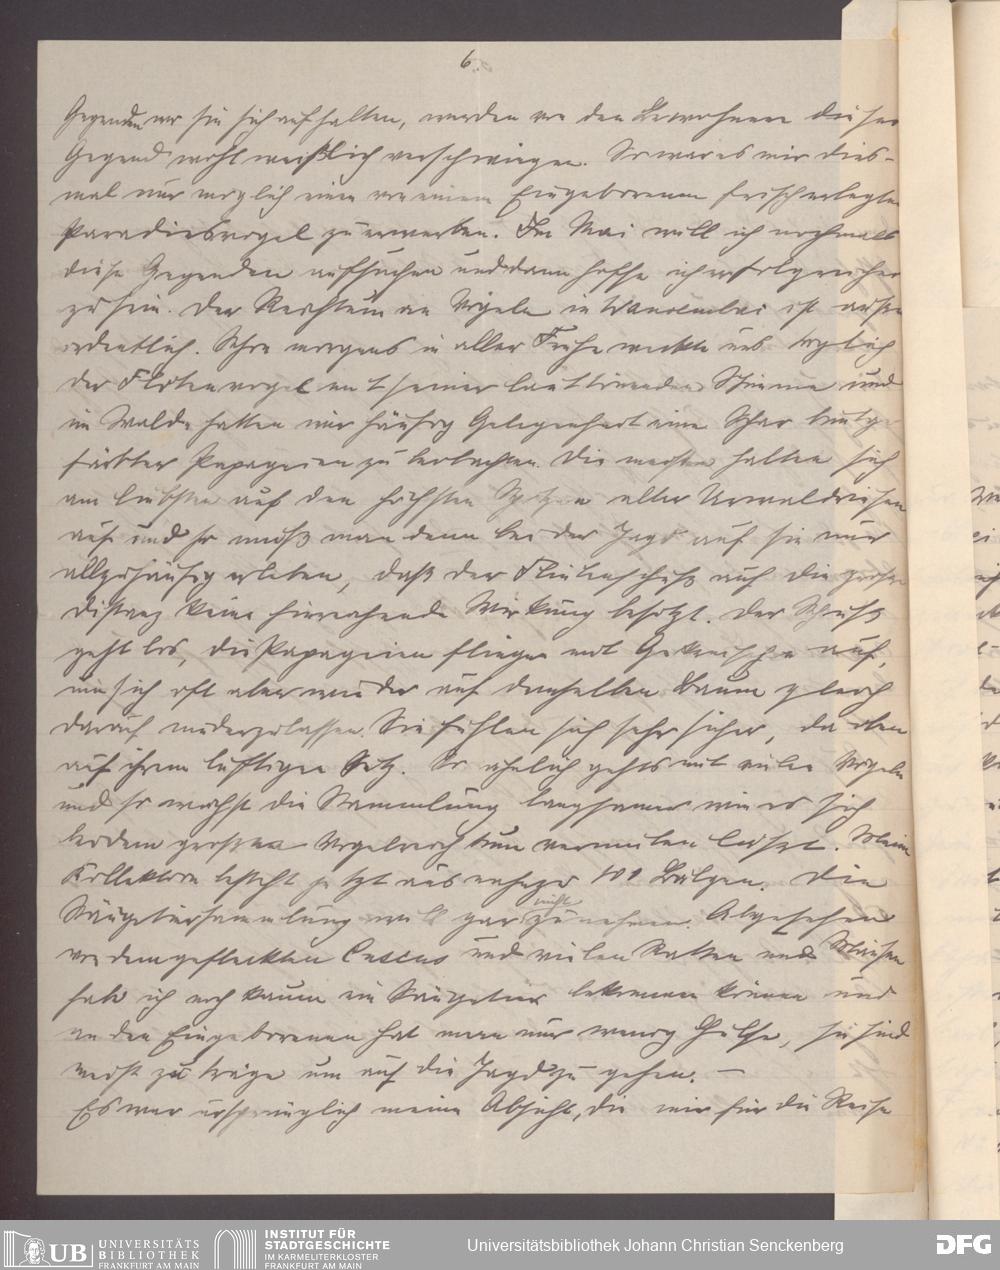 6.
Gegenden wo sie sich aufhalten, wurden von den Bewohnern dieser
Gegend wohl weißlich verschwiegen. So war es mir dies-
mal nur möglich einen von einem Eingeborenen frisch erlegten
Paradiesvogel zu erwerben. Im Mai will ich nochmals
diese Gegenden aufsuchen und dann hoffe ich erfolgreicher
zu sein. Der Reichtum an Vögeln in Wanoembai ist außer-
ordentlich. Schon morgens in aller Frühe weckte uns täglich
der Flötenvogel mit seiner laut tönenden Stimme und
im Walde hatten wir häufig Gelegenheit eine Schar buntge-
färbter Papageien zu beobachten. Die meisten halten sich
am liebsten auf den höchsten Spitzen aller Urwaldriesen
auf und so muß man denn bei der Jagd auf sie nur
allzuhäufig erleben, daß der Flintenschuß auf die große
Distanz keine hinreichende Wirkung besitzt. Der Schuß
geht los, die Papageien fliegen mit Gekreische auf,
um sich oft aber wieder auf denselben Baum gleich
darauf niederzulassen. Sie fühlen sich sehr sicher, da oben
auf ihrem luftigen Sitz. So ähnlich gehts mit vielen Vögeln
und so wächst die Sammlung langsamer wie es sich
bei dem großen Vogelreichtum vermuten ließt. Meine
Kollektion besteht jetzt aus nahezu 100 Bälgen. Die
Säugetiersammlung will gar nicht zunehmen. Abgesehen
von dem gefleckten Cuscus und vielen Ratten und Mäusen
habe ich noch kaum ein Säugetier bekommen können und
an den Eingeborenen hat man nur wenig Hülfe, sie sind
meist zu träge um auf die Jagd zu gehen. —
Es war ursprünglich meine Absicht, die mir für die Reise
UB UNIVERSITÄTS
BIBLIOTHEK
FRANKFURT AM MAIN
INSTITUT FÜR
STADTGESCHICHTE
IM KARMELITERKLOSTER
FRANKFURT AM MAIN
Universitätsbibliothek Johann Christian Senckenberg
DFG